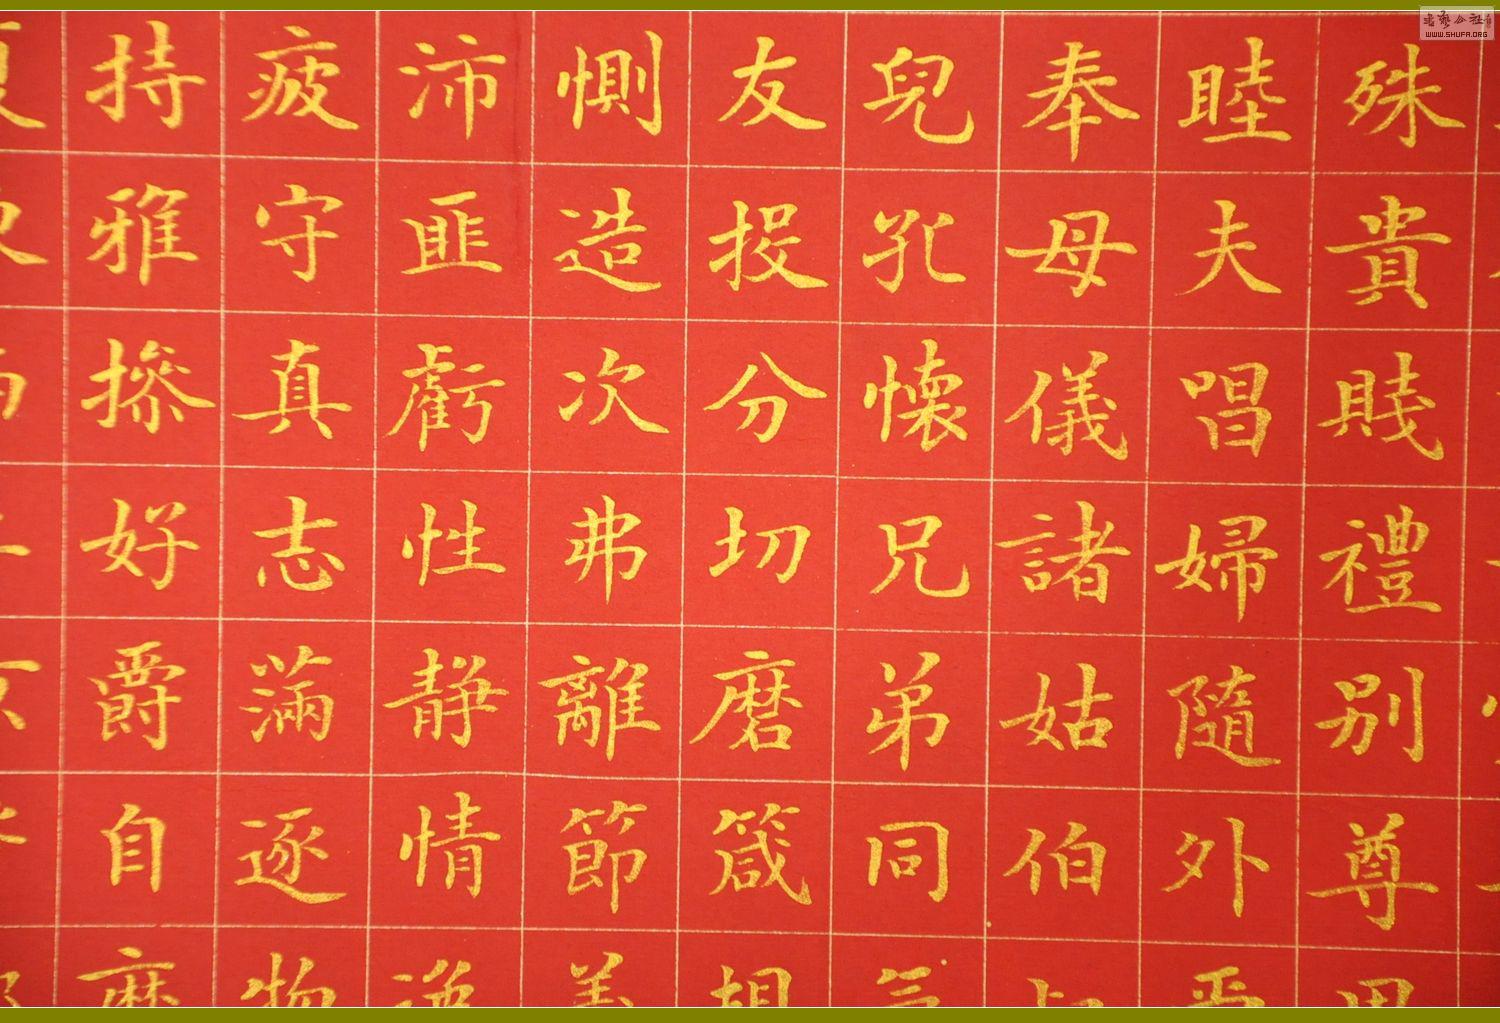 殊貴賤禮别尊
睦夫唱婦隨外
奉母儀諸姑伯
兒孔懷兄弟同
友投分切磨箴
惻造次弗離節
沛匪虧性静情
疲守真志滿逐物
持雅摻好爵自
書藝公社
WWW.SHUFA.ORG